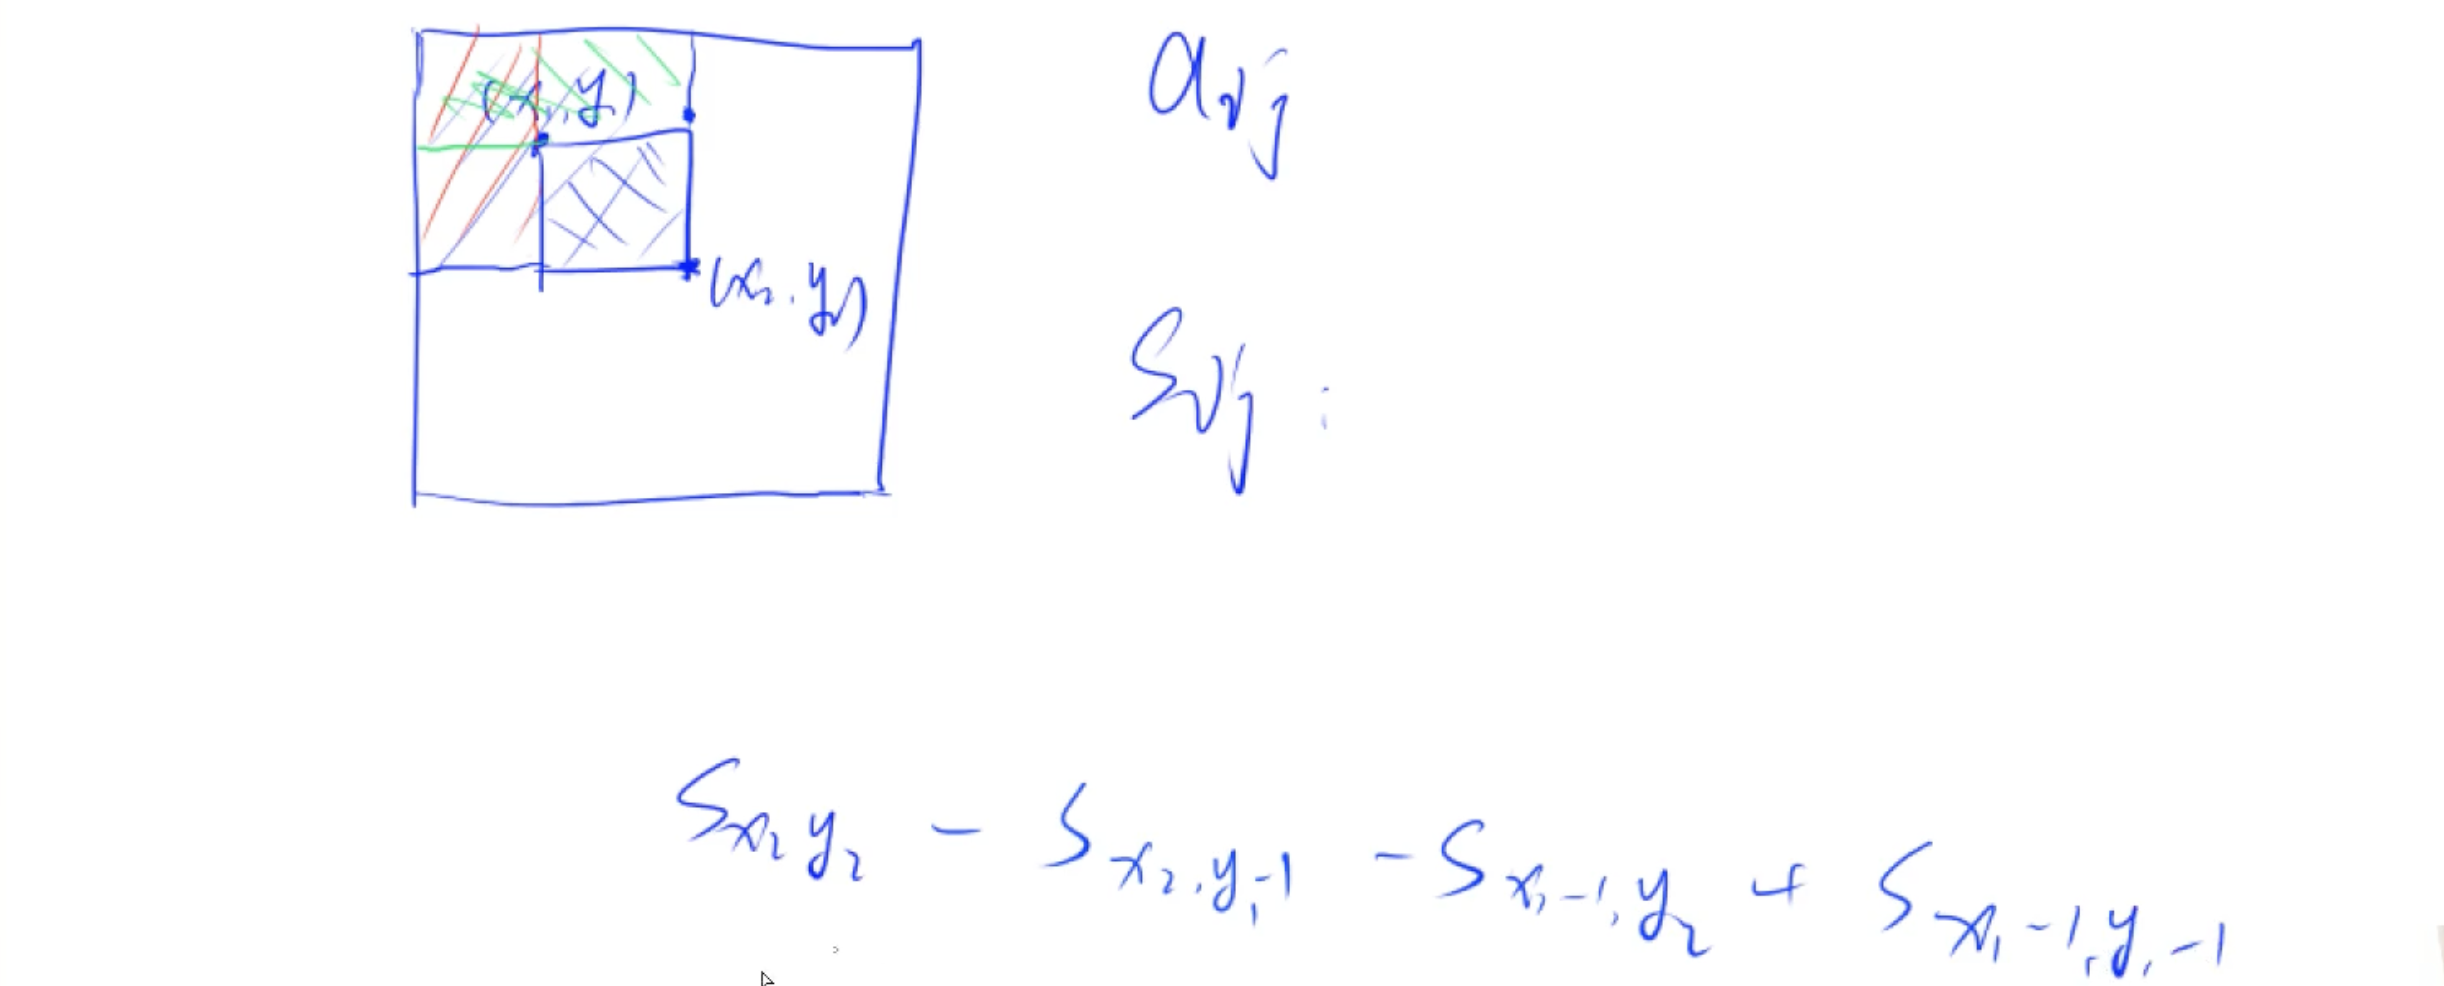 (x₁, y₁)
a_ij
(x₂, y₂)
S_ij :
S_x₂y₂ - S_x₂,y₁-1 - S_x₁-1,y₂ + S_x₁-1,y₁-1